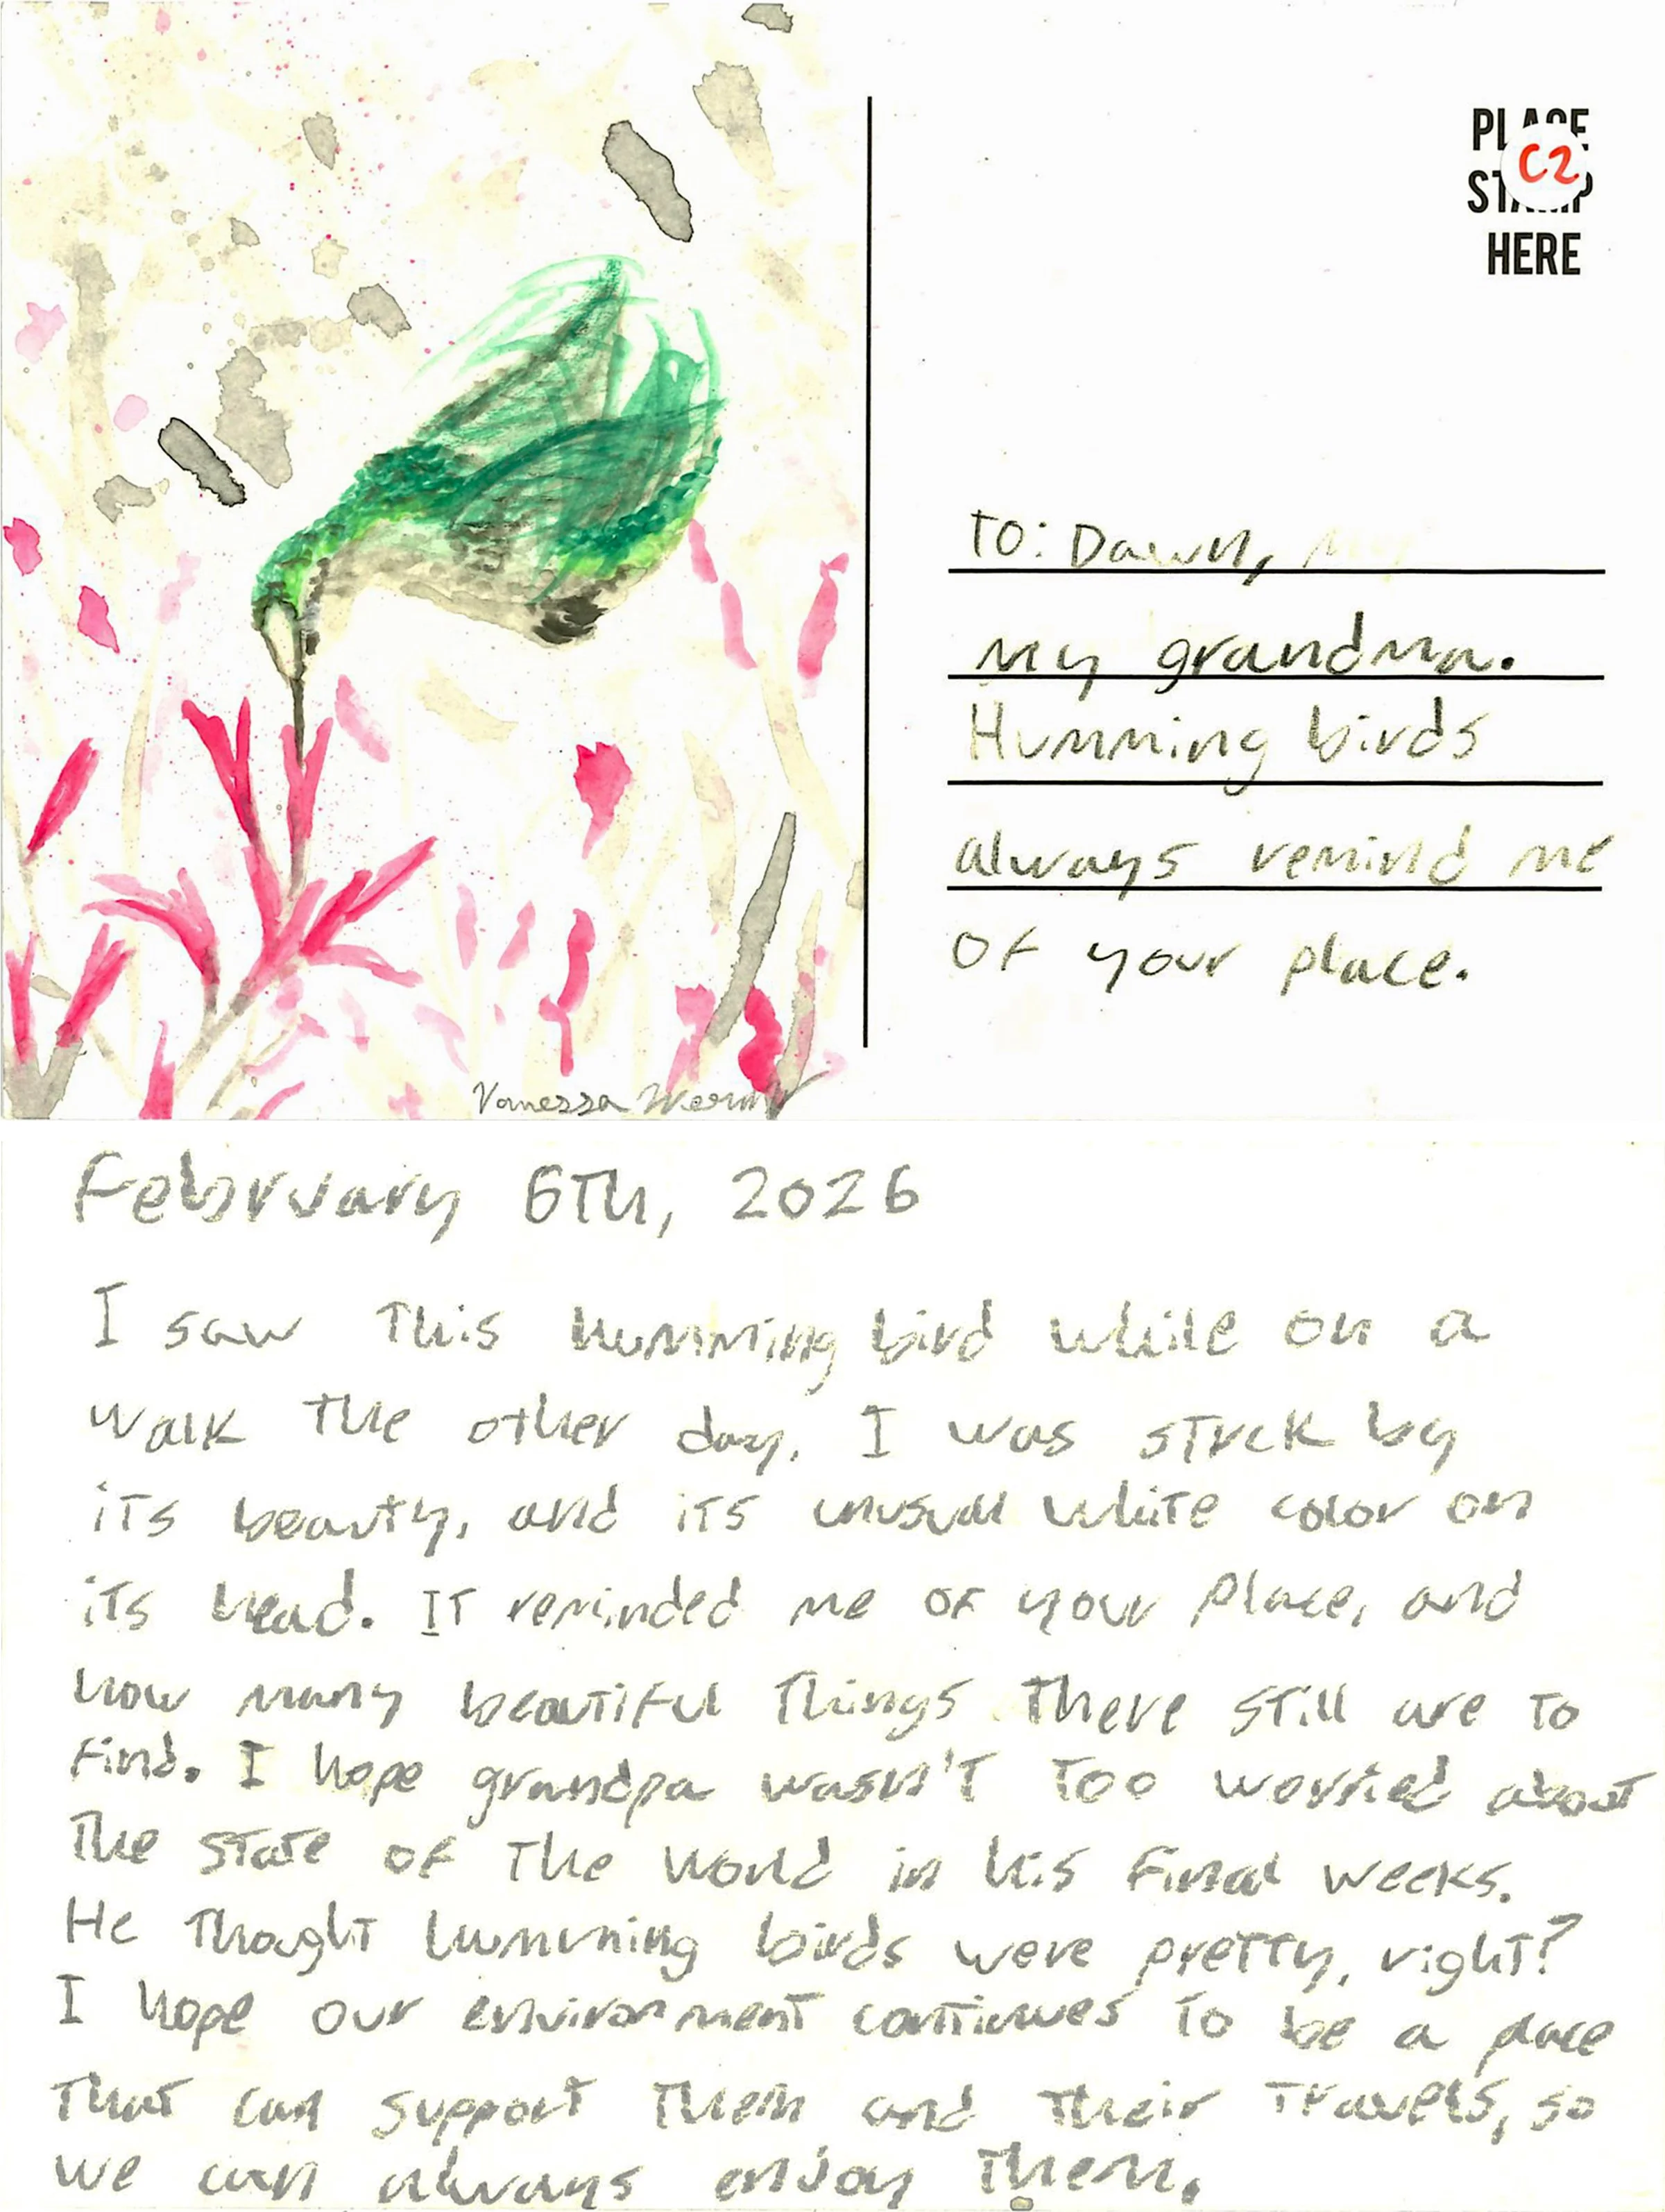 PLACE
STAMP
HERE
C2
TO: Dawn,
my grandma.
Humming birds
always remind me
OF your place.
Vanessa
February 6Th, 2026
I saw This humming bird while on a
walk The other day. I was struck by
iTs beauty, and iTs unusual white color on
iTs head. IT reminded me OF your place, and
how many beautiful Things There still are To
Find. I hope grandpa wasn'T Too worried about
The state OF The World in his Final weeks.
He ThoughT humming birds were pretty, right?
I hope our environment continues To be a place
ThaT can support Them and Their Travels, so
we can always enjoy Them.